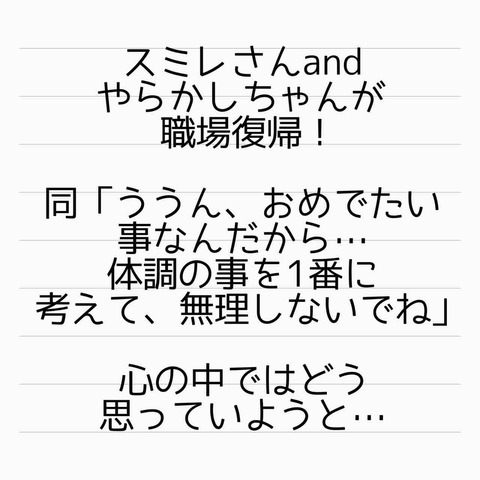 スミレさんand
やらかしちゃんが
職場復帰！
同「ううん、おめでたい
事なんだから…
体調の事を1番に
考えて、無理しないでね」
心の中ではどう
思っていようと…